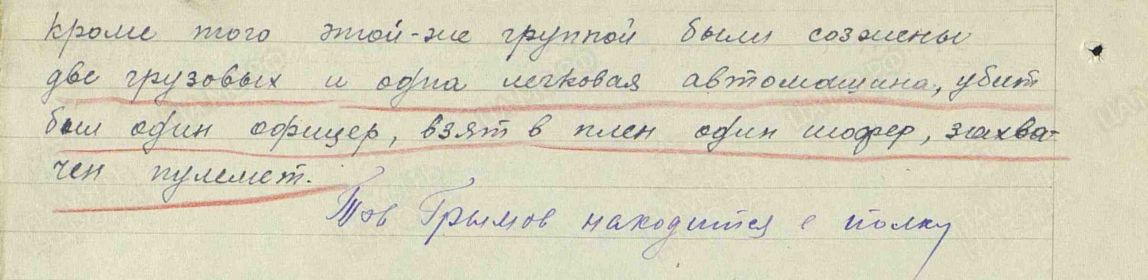 Кроме того этой-же группой были созжены
две грузовых и одна легковая автомашина, убит
был один офицер, взят в плен один шофер, захва-
чен пулемет.
Тов Грымов находится в полку